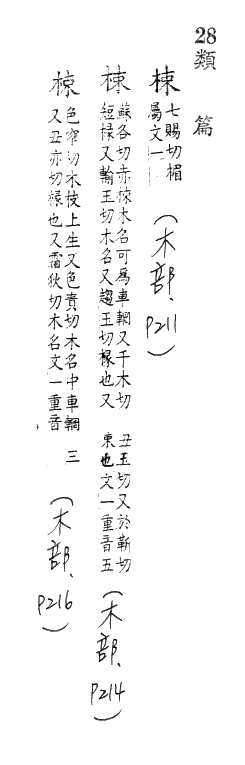 28類 篇
栜 七賜切楣
屬文一 (木部、P211)
棟 蘇各切赤棟木名可爲車輞又千木切 丑玉切又於靳切
短椽又輸玉切木名又趨玉切椽也又 東也文一重音五 (木部、P214)
㮦 色窄切木枝上生又色責切木名中車輞
又丑亦切椽也又霜狄切木名文一重音 三 (木部、P216)